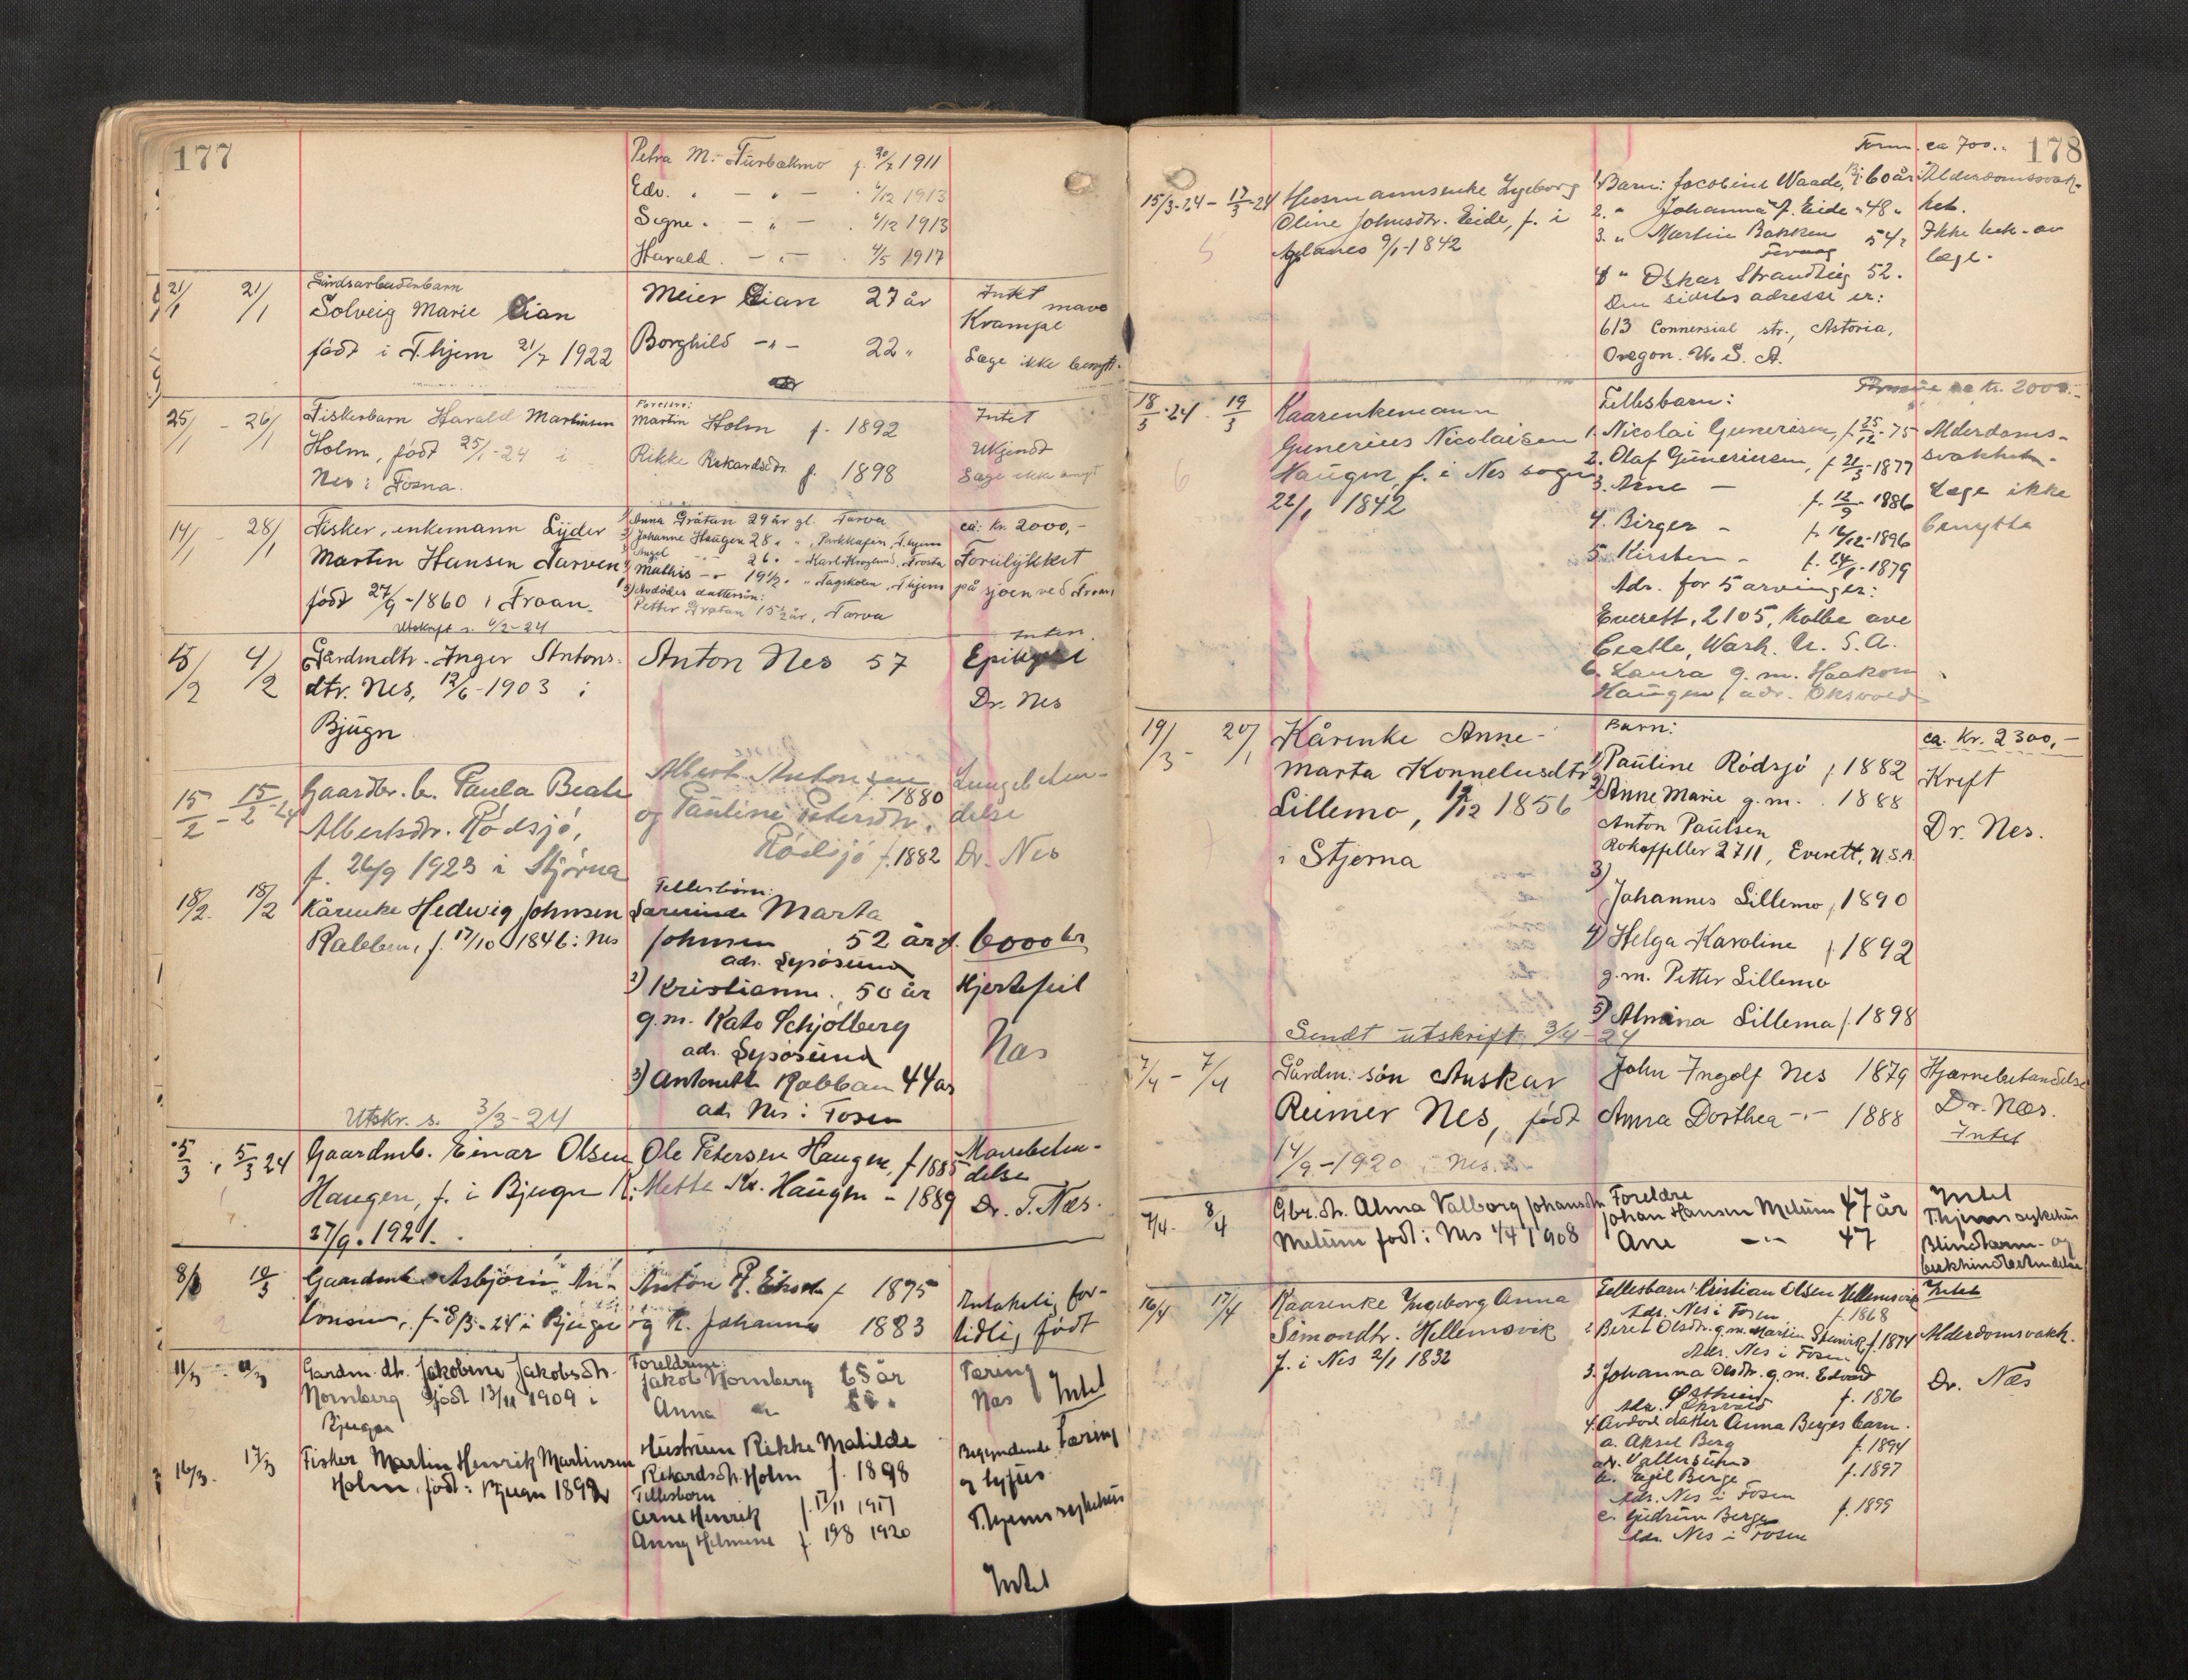 177
Petra M. Furbakmo f. 30/7 1911
Edv. " — " — . 4/12 1913
Signe. — " — . 4/12 1913
Harald. — " — . 4/5 1917
21/1 21/1
Gårdsarbeiderbarn
Solveig Marie Lian
född i T.hjem 21/7 1922
Meier Lian 27 år
Borghild —"— 22 "
Intet
mave
Krampe
Læge ikke benytt.
25/1 - 26/1
Fiskerbarn Harald Martinsen
Holm, född 25/1-24 i
Nes i Fosna.
Foreldre:
Martin Holm f. 1892
Rikke Rikardsdtr. f. 1898
Intet
Ukjendt
Læge ikke
14/1 - 28/1
Fisker, enkemann Lyder
Martin Hansen Tarven
född 27/9-1860 i Froan.
Utskrift s. 4/2-24
1) Anna Gråtan 29 år gl. Tarva
2) Johanne Haugen 28 " ", T.hjem
26 " Frosta
4) Mathis —"— 19 1/2 " Fagskolen, T.hjem
5) Avdødes dattersön:
Petter Gråtan 15 1/2 år, Tarva
ca. kr. 2000,-
Forulykket
på sjøen ved Froan
/2 4/2
Gårdmdtr. Inger Antons-
dtr. Nes, 12/6-1903 i
Bjugn
Anton Nes 57
Intet.
Dr. Nes
15/2 - 15/2-24
Gaardbr. b. Paula Beate
Albertsdtr. Rödsjö,
f. 26/9 1923 i Stjørna
Albert Antonsen
f. 1880
og Pauline Petersdtr.
Rödsjö f. 1882
Lungebeten-
delse
Dr. Nes
18/2. 18/2
Kårenke Hedwig Johnsen
Rabben, f. 17/10 1846 i Nes
Utskr. s. 3/3-24
Fellesbörn:
Lærerinde Marta
Johnsen 52 år
adr. Lysösund
2) Kristianne. 50 år
g.m. Kato Schjölberg
adr. Lysösund
3) Antonette Rabben 44 år
adr. Nes i Fosen
6000 kr
Hjertefeil
Næs
5/3, 5/3 24
Gaardmb. Einar Olsen
Haugen, f. i Bjugn
27/9. 1921.
Ole Petersen Haugen, f 1885
Mette Kr. Haugen - 1889
Mavebeten-
delse
Dr. T. Næs.
8/3 10/3
Gaardmb. Asbjörn An-
tonsen, f. 8/3-24 i Bjugn
Anton P. f 1875
og K. Johanna 1883
Antakelig for-
tidlig född
11/3 - 11/3
Gardm. dtr. Jakobine Jakobsdtr.
Nornberg född 13/11 1909 i
Bjugn
Foreldrene:
Jakob Nornberg 65 år
Anna
Tæring
Næs Intet
16/3. 17/3
Fisker Martin Henrik Martinsen
Holm, född i Bjugn 1892
Hustruen Rikke Matilde
Rikardsdtr. Holm f. 1898
Fellesbørn
Arne Henrik f. 17/11
Anny Helmine f. 19/8 1920
Begyndende Tæring
og tyfus
T.hjems sykehus
Intet
178
Form. ca 700..
15/3-24 - 17/3-24
Husmannsenke Ingeborg
Oline Johnsdtr. Eide, f. i
Agdanes 9/1-1842
5
Barn: 1. Jacobine Waade, 60 år
2. " Johanna f. Eide " 48 "
3. " Martin Bakken 54 "
4 " Oskar Strandlig 52.
Den sidstes adresse er:
613 Connersial str., Astoria,
Oregon. U. S. A.
Alderdomssvak-
het.
Ikke beh. av
læge.
18/3-24. 19/3
6
Kaarenkemann
Gunerius Nicolaisen
Haugen, f. i Nes sogn
22/1 1842
Fellesbarn:
1. Nicolai Guneriusen, f. 25/12-75
2. Olaf Guneriusen, f 21/3-1877
3. Arne — f. 12/9 1886
4. Birger — f. 16/12-1896
5. Kirsten — f. 24/1-1879
Adr. for 5 arvinger:
Everett, 2105, Kolbe ave
Ceatle, Wash. U. S. A.
6. Laura g. m. Haakon
Haugen (adr. Oksvold
Formue ca kr. 2000.-
Alderdoms-
svakhet.
Læge ikke
benytta
19/3 - 20/1
Kårenke Anne-
Marta Konneliusdtr
Lillemo, 12 1856
i Stjørna
Sendt utskrift 3/4-24
Barn:
1) Pauline Rödsjö f 1882
2) Anne Marie g.m. . 1888
Anton Paulsen
Rokoffeller 2711, Everett, U.S.A.
3)
Johannes Lillemo f 1890
4) Helga Karoline f 1892
g.m. Petter Lillemo
5) Almina Lillemo f. 1898
ca. kr. 2300,-
Kreft
Dr. Nes.
7/4 - 7/4
Gårdm. sön Anskar
Reimer Nes, född
14/9-1920 i Nes.
John Ingolf Nes 1879
Anna Dorthea —"— 1888
Hjernebetændelse
Dr. Næs.
Intet
7/4. 8/4
Gbr. dtr. Alma Valborg Johansdtr.
Melum född i Nes 4/4 1908
Foreldre
Johan Hansen Melum 47 år
Ane —"— 47
Intet
T.hjems sykehus
Blindtarm- og
bukhindebetændelse
16/4 17/4
Kaarenke Ingeborg Anna
Simondtr. Hellemsvik
f. i Nes 2/1 1832
Fellesbarn: 1 Kristian Olsen Hellemsvik
Adr. Nes i Fosen f. 1868
2 Beret Olsdtr. g.m. Martin f. 1874
Adr. Nes i Fosen
3. Johanna Olsdtr. g.m. Edvard
f. 1876
Adr. Oksvold
4. Avdød datter Anna Berges barn.
a. Aksel Berg f. 1894
adr. Vallersund
b. Egil Berge f. 1897
Adr. Nes i Fosen
c. Gudrun Berge f. 1899
Adr. Nes i Fosen
Intet
Alderdomsvakh.
Dr. Næs